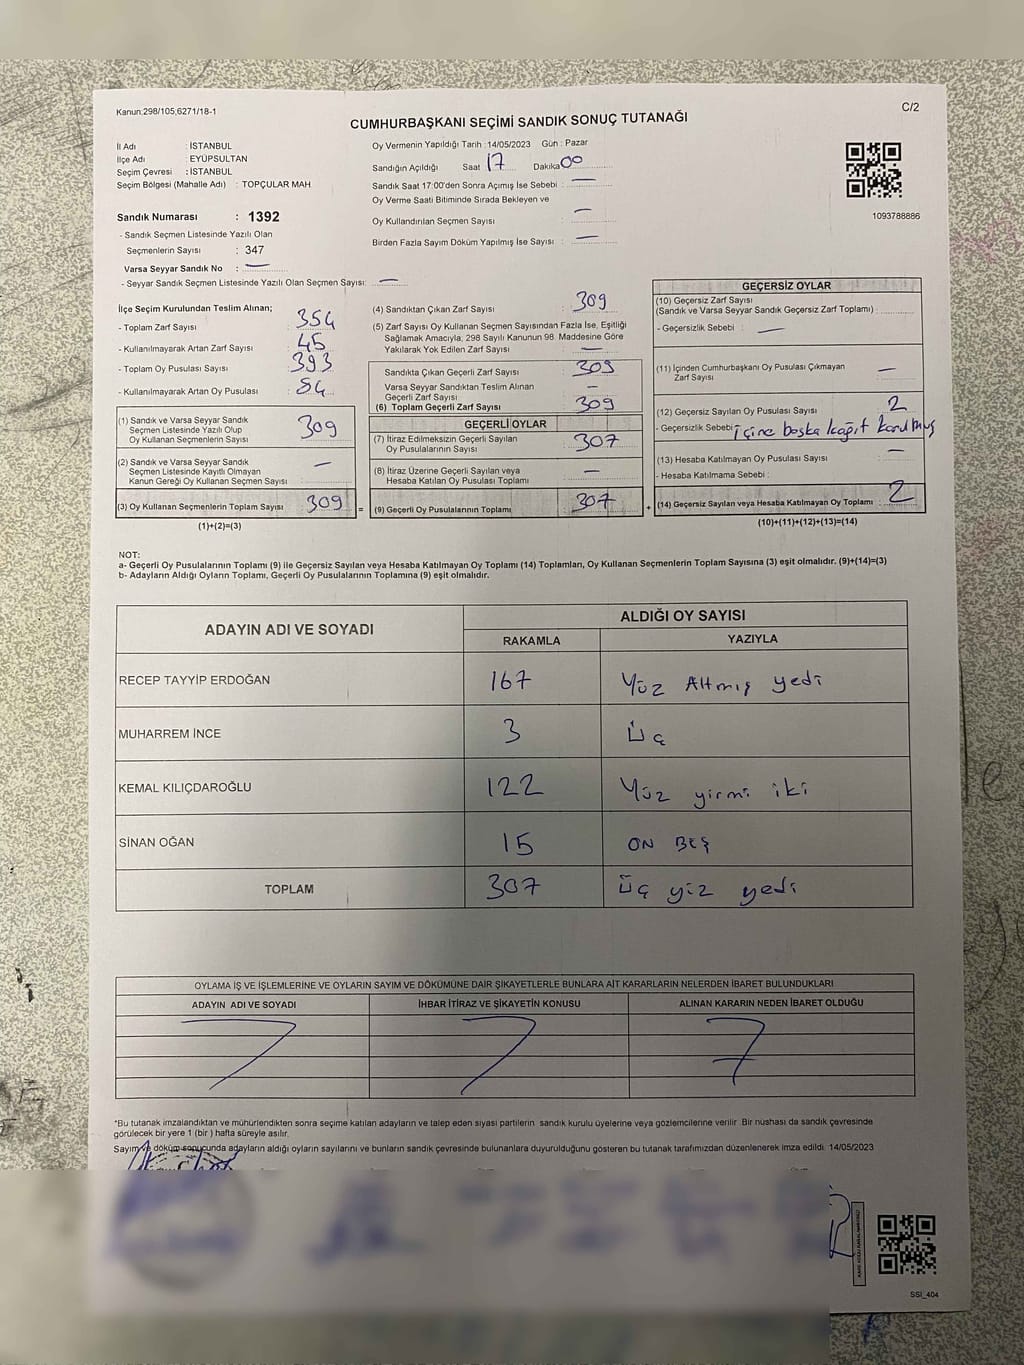 Kanun:298/105;6271/18-1
C/2
CUMHURBAŞKANI SEÇİMİ SANDIK SONUÇ TUTANAĞI
İl Adı : İSTANBUL
İlçe Adı : EYÜPSULTAN
Seçim Çevresi : İSTANBUL
Seçim Bölgesi (Mahalle Adı) : TOPÇULAR MAH
Sandık Numarası : 1392
- Sandık Seçmen Listesinde Yazılı Olan
Seçmenlerin Sayısı : 347
Varsa Seyyar Sandık No : —
- Seyyar Sandık Seçmen Listesinde Yazılı Olan Seçmen Sayısı: —
Oy Vermenin Yapıldığı Tarih : 14/05/2023 Gün : Pazar
Sandığın Açıldığı Saat 17 Dakika 00
Sandık Saat 17:00'den Sonra Açımış İse Sebebi : —
Oy Verme Saati Bitiminde Sırada Bekleyen ve
Oy Kullandırılan Seçmen Sayısı : —
Birden Fazla Sayım Döküm Yapılmış İse Sayısı : —
1093788886
İlçe Seçim Kurulundan Teslim Alınan;
- Toplam Zarf Sayısı : 354
- Kullanılmayarak Artan Zarf Sayısı : 45
- Toplam Oy Pusulası Sayısı : 393
- Kullanılmayarak Artan Oy Pusulası : 84
(1) Sandık ve Varsa Seyyar Sandık
Seçmen Listesinde Yazılı Olup
Oy Kullanan Seçmenlerin Sayısı : 309
(2) Sandık ve Varsa Seyyar Sandık
Seçmen Listesinde Kayıtlı Olmayan
Kanun Gereği Oy Kullanan Seçmen Sayısı : —
(3) Oy Kullanan Seçmenlerin Toplam Sayısı : 309
(1)+(2)=(3)
(4) Sandıktan Çıkan Zarf Sayısı : 309
(5) Zarf Sayısı Oy Kullanan Seçmen Sayısından Fazla İse, Eşitliği
Sağlamak Amacıyla, 298 Sayılı Kanunun 98. Maddesine Göre
Yakılarak Yok Edilen Zarf Sayısı : —
Sandıkta Çıkan Geçerli Zarf Sayısı : 309
Varsa Seyyar Sandıktan Teslim Alınan
Geçerli Zarf Sayısı : —
(6) Toplam Geçerli Zarf Sayısı : 309
GEÇERLİ OYLAR
(7) İtiraz Edilmeksizin Geçerli Sayılan
Oy Pusulalarının Sayısı : 307
(8) İtiraz Üzerine Geçerli Sayılan veya
Hesaba Katılan Oy Pusulası Toplamı : —
= (9) Geçerli Oy Pusulalarının Toplamı : 307
GEÇERSİZ OYLAR
(10) Geçersiz Zarf Sayısı
(Sandık ve Varsa Seyyar Sandık Geçersiz Zarf Toplamı) :
- Geçersizlik Sebebi : —
(11) İçinden Cumhurbaşkanı Oy Pusulası Çıkmayan
Zarf Sayısı : —
(12) Geçersiz Sayılan Oy Pusulası Sayısı : 2
- Geçersizlik Sebebi : içine başka kağıt konulmuş
(13) Hesaba Katılmayan Oy Pusulası Sayısı : —
- Hesaba Katılmama Sebebi :
+ (14) Geçersiz Sayılan veya Hesaba Katılmayan Oy Toplamı : 2
(10)+(11)+(12)+(13)=(14)
NOT:
a- Geçerli Oy Pusulalarının Toplamı (9) ile Geçersiz Sayılan veya Hesaba Katılmayan Oy Toplamı (14) Toplamları, Oy Kullanan Seçmenlerin Toplam Sayısına (3) eşit olmalıdır. (9)+(14)=(3)
b- Adayların Aldığı Oyların Toplamı, Geçerli Oy Pusulalarının Toplamına (9) eşit olmalıdır.
ADAYIN ADI VE SOYADI ALDIĞI OY SAYISI
RAKAMLA YAZIYLA
RECEP TAYYİP ERDOĞAN 167 Yüz Altmış yedi
MUHARREM İNCE 3 üç
KEMAL KILIÇDAROĞLU 122 Yüz yirmi iki
SİNAN OĞAN 15 ON BEŞ
TOPLAM 307 üç yüz yedi
OYLAMA İŞ VE İŞLEMLERİNE VE OYLARIN SAYIM VE DÖKÜMÜNE DAİR ŞİKAYETLERLE BUNLARA AİT KARARLARIN NELERDEN İBARET BULUNDUKLARI
ADAYIN ADI VE SOYADI İHBAR İTİRAZ VE ŞİKAYETİN KONUSU ALINAN KARARIN NEDEN İBARET OLDUĞU
*Bu tutanak imzalandıktan ve mühürlendikten sonra seçime katılan adayların ve talep eden siyasi partilerin sandık kurulu üyelerine veya gözlemcilerine verilir. Bir nüshası da sandık çevresinde
görülecek bir yere 1 (bir ) hafta süreyle asılır.
Sayım ve döküm sonucunda adayların aldığı oyların sayılarını ve bunların sandık çevresinde bulunanlara duyurulduğunu gösteren bu tutanak tarafımızdan düzenlenerek imza edildi. 14/05/2023
SSI_404